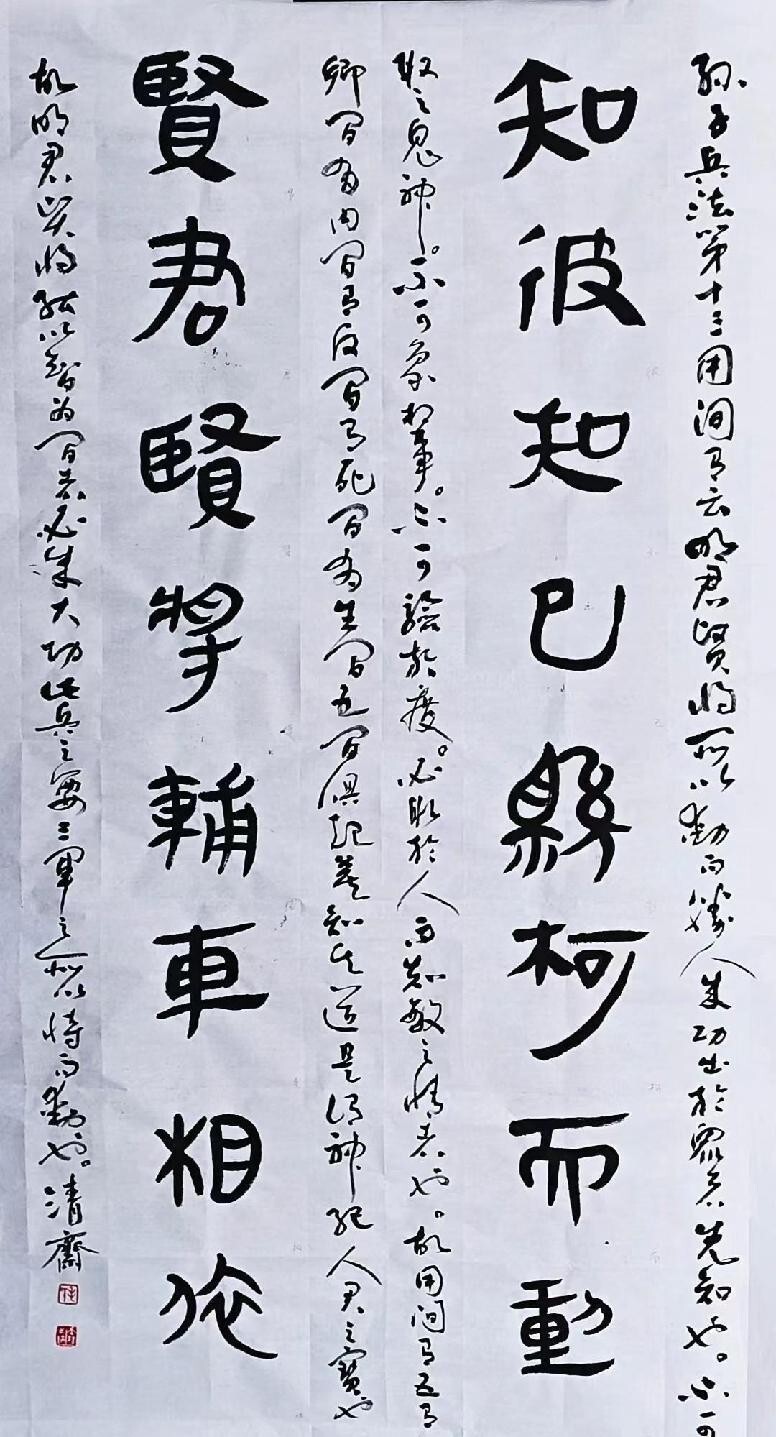 孙子兵法第十三用间有云明君贤将所以动而胜人成功出於众者先知也。不可
知彼知己縣柯而動
取之鬼神。不可象於事。不可验於度。必取於人而知敌之情者也。故用间有五有
鄉间有内间有反间有死间有生间五间俱起莫知其道是谓神纪人君之寳也
賢君賢將輔車相依
故明君贤将能以智为间者必成大功此兵之要三军之所以恃而动也。清齋